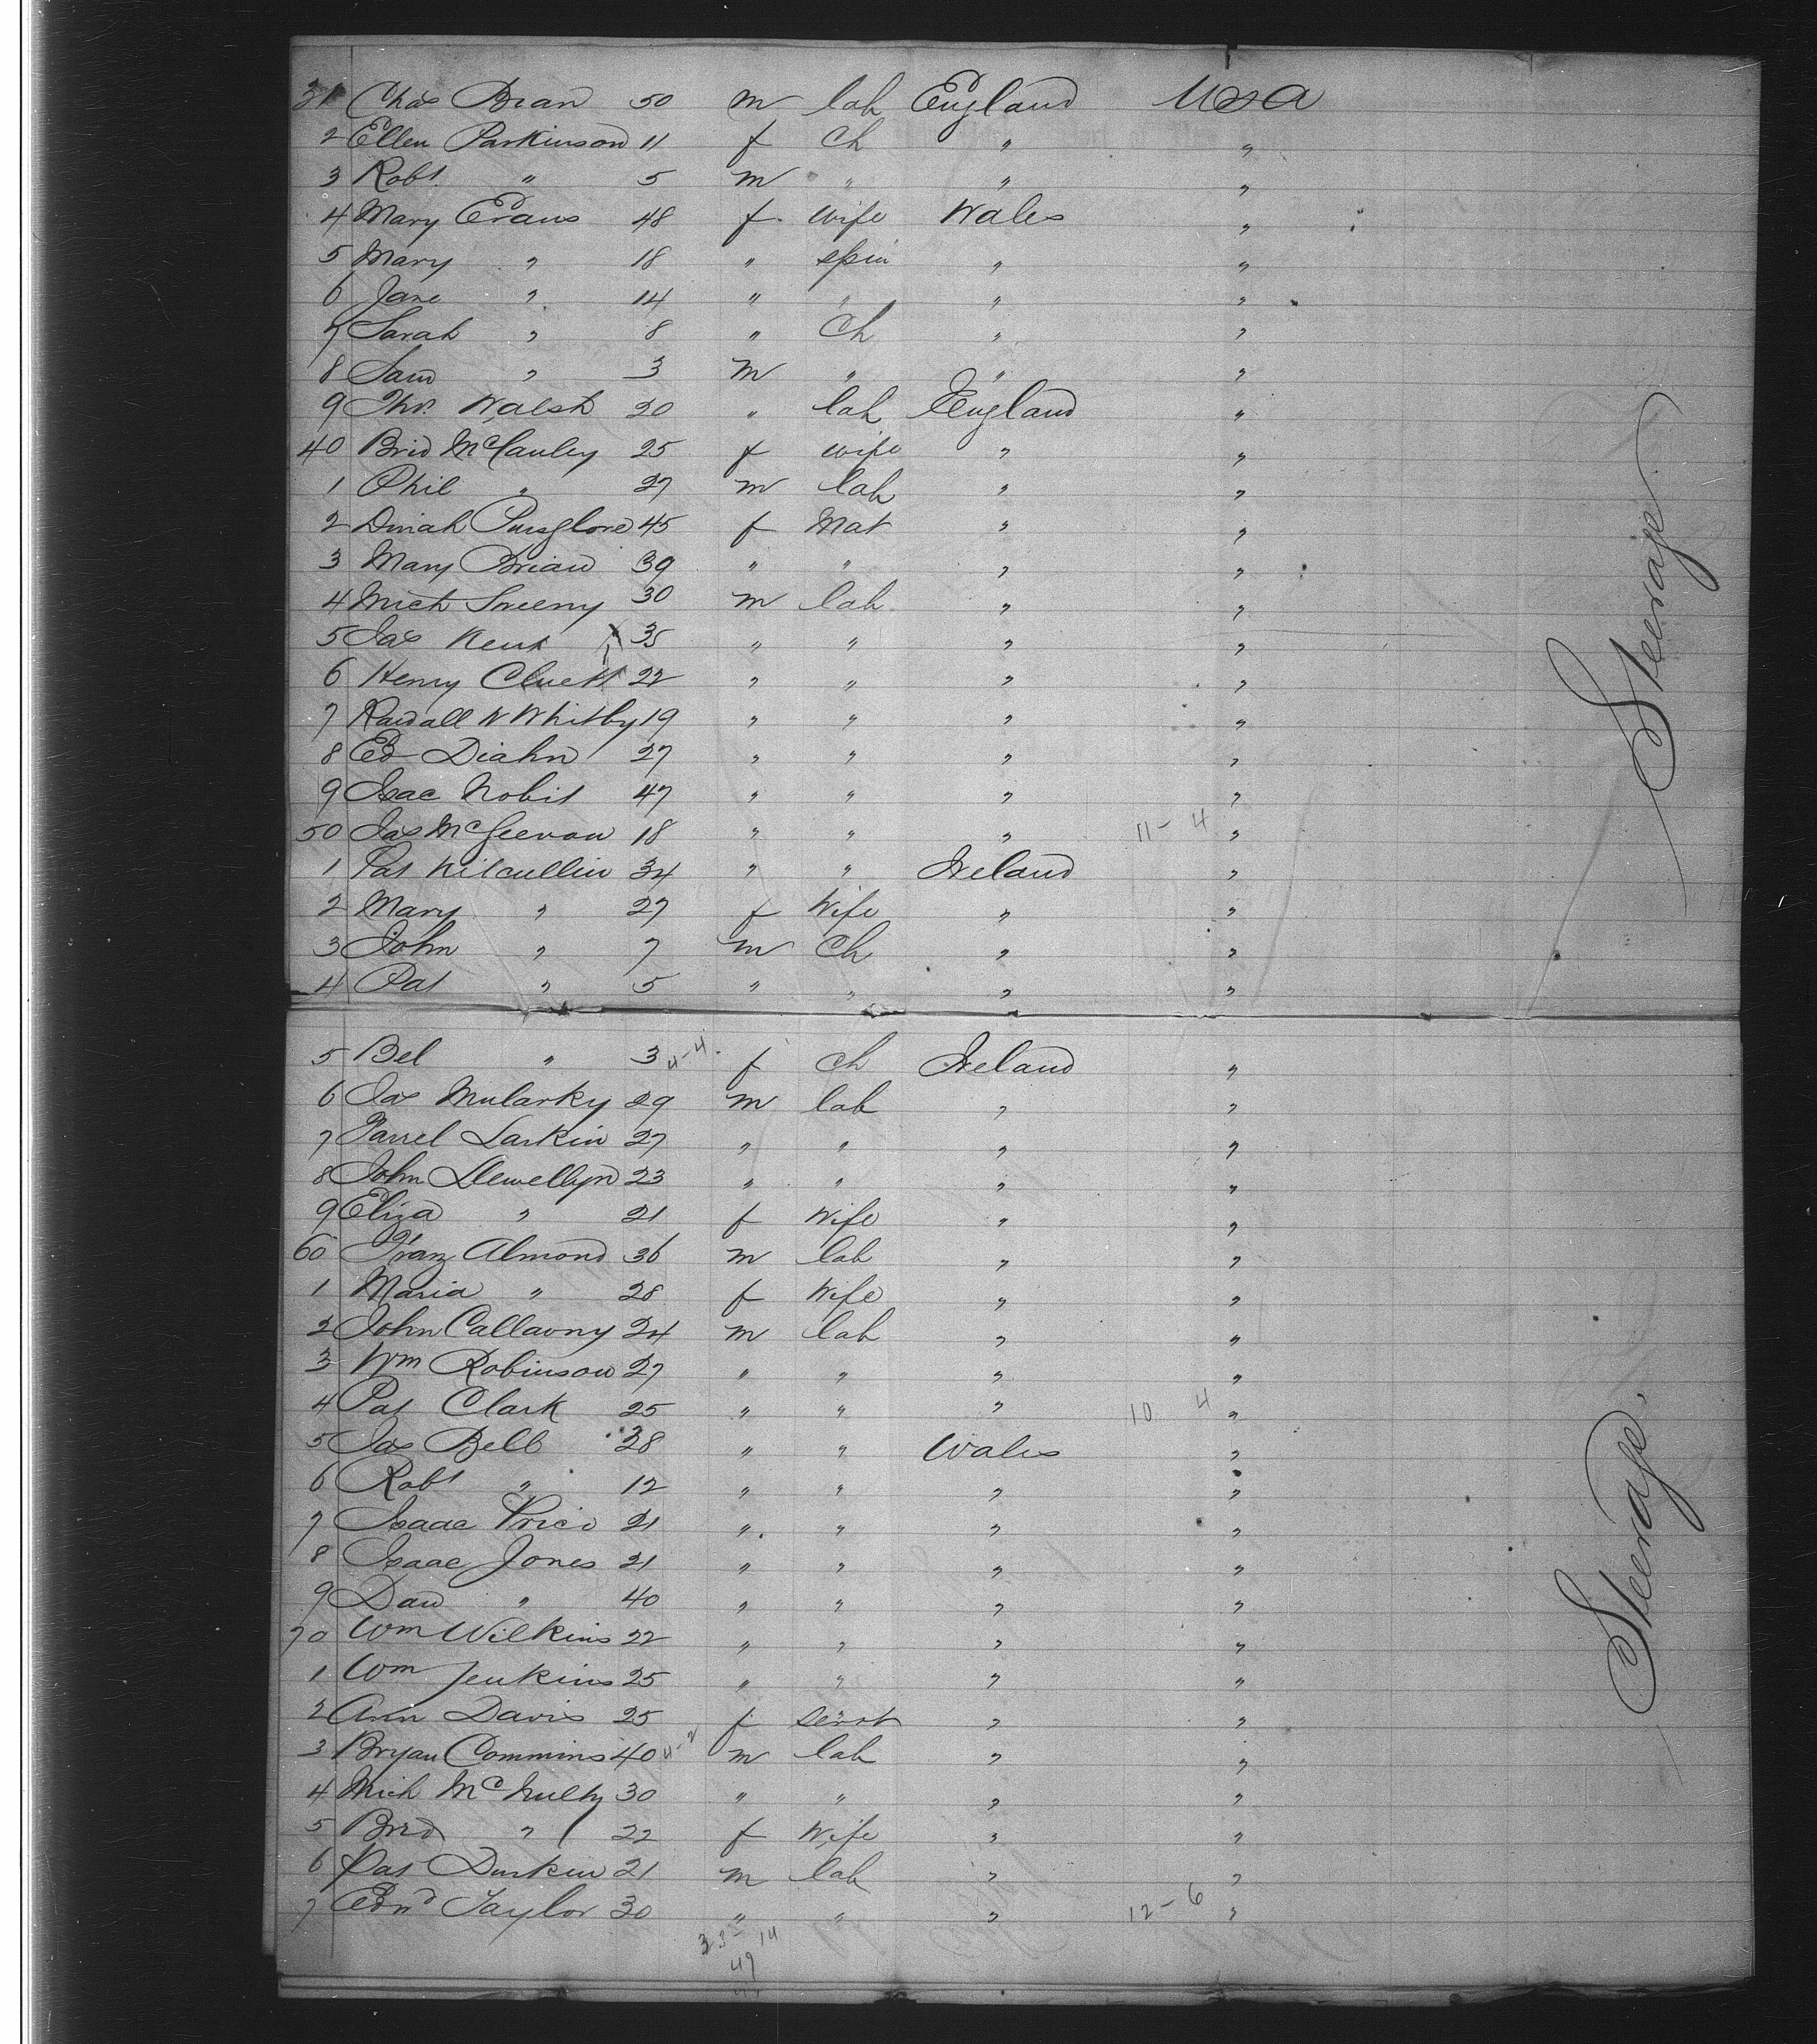 31 Chas Brian 50 m lab England USA
2 Ellen Parkinson 11 f Ch " "
3 Robt " 5 m " " "
4 Mary Evans 48 f wife Wales "
5 Mary " 18 " spin " "
6 Jane " 14 " " " "
7 Sarah " 8 " Ch " "
8 Sam " 3 m " " "
9 Thos Walsh 20 " lab England "
40 Brid McCauley 25 f wife " "
1 Phil " 27 m lab " "
2 Dinah Pursglove 45 f Mat " "
3 Mary Brian 39 " " " "
4 Mich Sweeny 30 m lab " "
5 Jas Kent 35 " " " "
6 Henry Cluett 22 " " " "
7 Randall W Whitby 19 " " " "
8 Ed Diahn 27 " " " "
9 Isac Nobit 47 " " " "
50 Jas McGeevan 18 " " " 11-4 "
1 Pat Kilcullin 34 " " Ireland "
2 Mary " 27 f Wife " "
3 John " 7 m Ch " "
4 Pat " 5 " " " "
Steerage
5 Bel " 3 4-4 f ch Ireland "
6 Jas Mularky 29 m lab " "
7 Farrel Larkin 27 " " " "
8 John Llewellyn 23 " " " "
9 Eliza " 21 f Wife " "
60 Franz Almond 36 m lab " "
1 Maria " 28 f Wife " "
2 John Callaony 24 m lab " "
3 Wm Robinson 27 " " " "
4 Pat Clark 25 " " " 10 4 "
5 Jas Bell 38 " " Wales "
6 Robt " 12 " " " "
7 Isaac Price 21 " " " "
8 Isaac Jones 21 " " " "
9 Dan " 40 " " " "
70 Wm Wilkins 22 " " " "
1 Wm Jenkins 25 " " " "
2 Ann Davis 25 f servt " "
3 Bryan Commins 40 4-2 m lab " "
4 Mich McNulty 30 " " " "
5 Brid " 22 f Wife " "
6 Pat Durkin 21 m lab " "
7 Edwd Taylor 30 " " " 12-6 "
33-14
47
Steerage